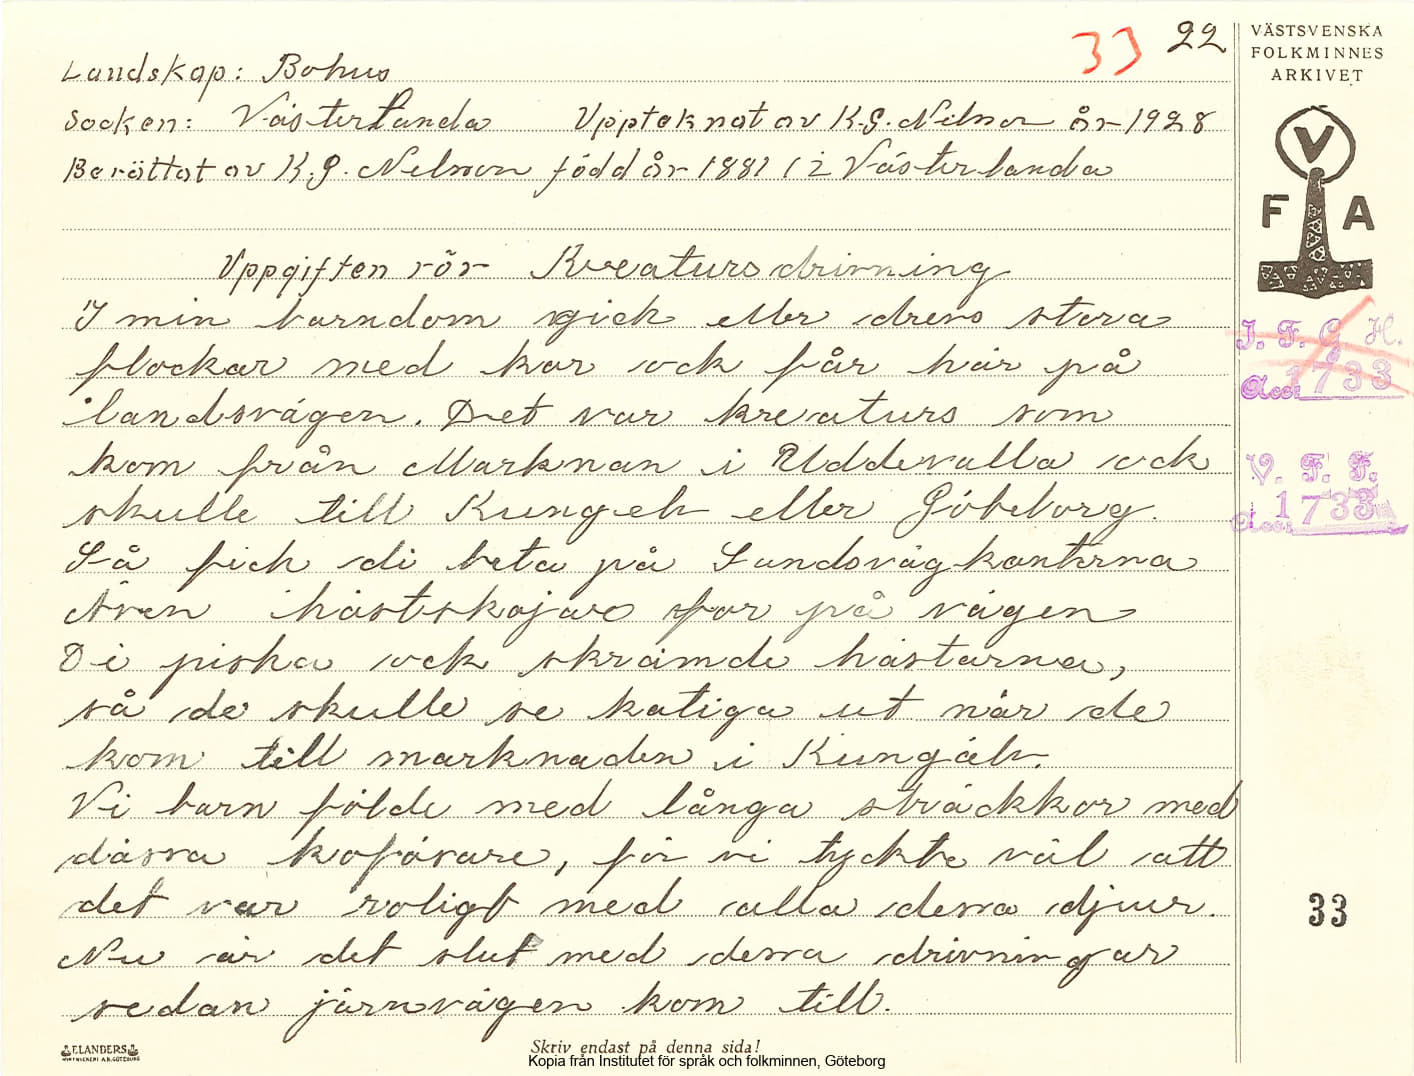 33 22
Landskap: Bohus
Socken: Västerlanda Upptecknat av K.G. Nelson år 1928
Berättat av K.G. Nelsson född år 1881 i Västerlanda
Uppgiften rör Kreatursdrivning
I min barndom gick eller drevs stora
flockar med kor ock får här på
landsvägen. Det var kreaturs som
kom från Marknan i Uddevalla ock
skulle till Kungelv eller Göteborg.
Så fick di beta på Landsvägkanterna
Även hästskojare for på vägen
Di piska ock skrämde hästarna,
så de skulle se katiga ut när de
kom till marknaden i Kungälv.
Vi barn földe med långa sträckkor med
dässa koförare, för vi tyckte väl att
det var roligt med alla dessa djur.
Nu är det slut med dessa drivningar
sedan järnvägen kom till.
Skriv endast på denna sida!
Kopia från Institutet för språk och folkminnen, Göteborg
ELANDERS
VÄSTSVENSKA
FOLKMINNES
ARKIVET
V
F A
I. F. G. H.
Acc. 1733
V. F. F.
Acc. 1733
33